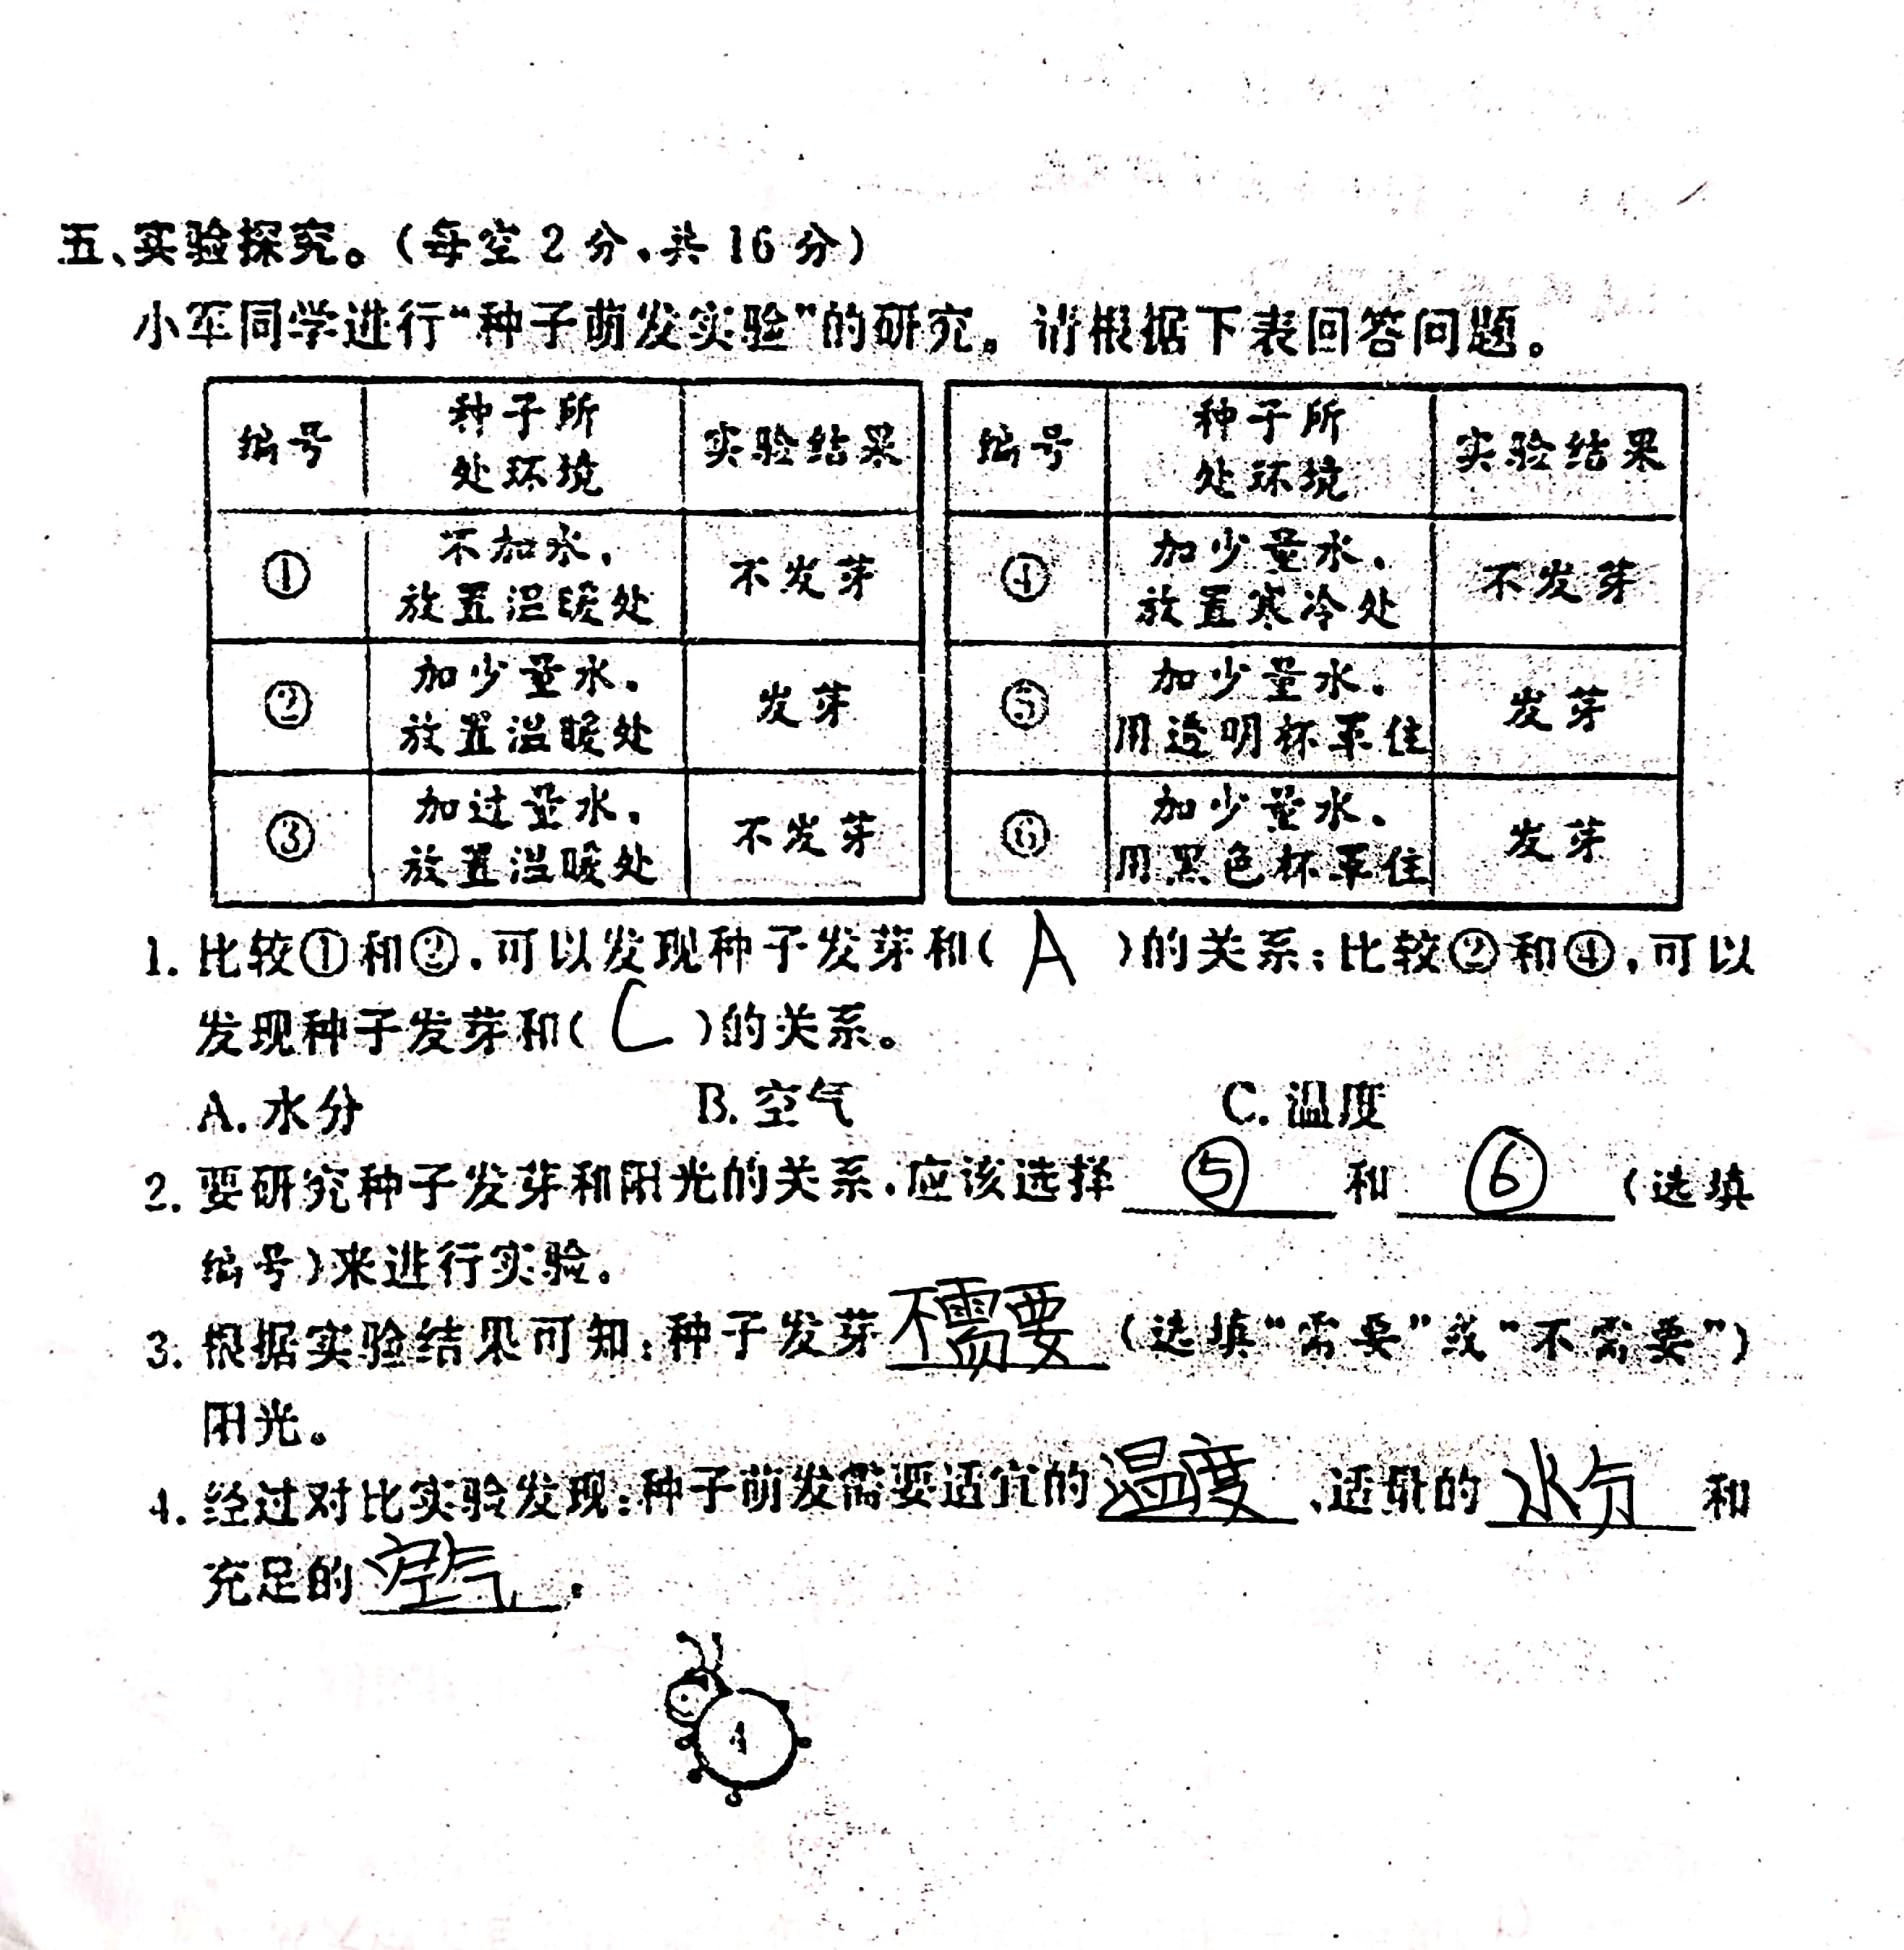 五、实验探究。(每空2分,共16分)
小军同学进行“种子萌发实验”的研究。请根据下表回答问题。
编号 种子所处环境 实验结果 编号 种子所处环境 实验结果
① 不加水,放置温暖处 不发芽 ④ 加少量水,放置寒冷处 不发芽
② 加少量水,放置温暖处 发芽 ⑤ 加少量水,用透明杯罩住 发芽
③ 加过量水,放置温暖处 不发芽 ⑥ 加少量水,用黑色杯罩住 发芽
1. 比较①和②,可以发现种子发芽和( A )的关系;比较②和④,可以
发现种子发芽和( C )的关系。
A. 水分 B. 空气 C. 温度
2. 要研究种子发芽和阳光的关系,应该选择 ⑤ 和 ⑥ (选填
编号)来进行实验。
3. 根据实验结果可知:种子发芽 不需要 (选填“需要”或“不需要”)
阳光。
4. 经过对比实验发现:种子萌发需要适宜的 温度 、适量的 水分 和
充足的 空气 。
4